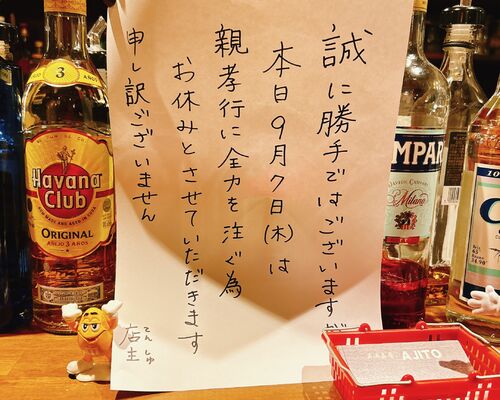 誠に勝手ではございますが
本日9月7日(木)は
親孝行に全力を注ぐ為
お休みとさせていただきます
申し訳ございません
店主
てんしゅ
3
Havana
Club
ORIGINAL
AÑEJO 3 AÑOS
MPAR
Milano
AJITO